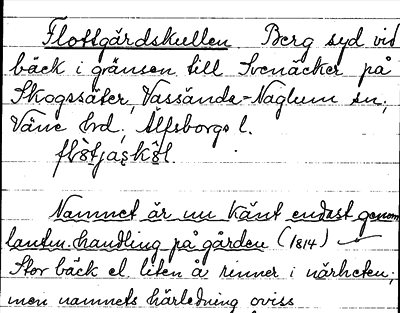 Flottgårdskullen Berg syd vid
bäck i gränsen till Svenäcker på
Skogssäter, Vassända-Naglum sn;
Väne hd, Älfsborgs l.
Namnet är nu känt endast genom
lantm. handling på gården (1814)
Stor bäck el. liten å rinner i närheten;
men namnets härledning oviss